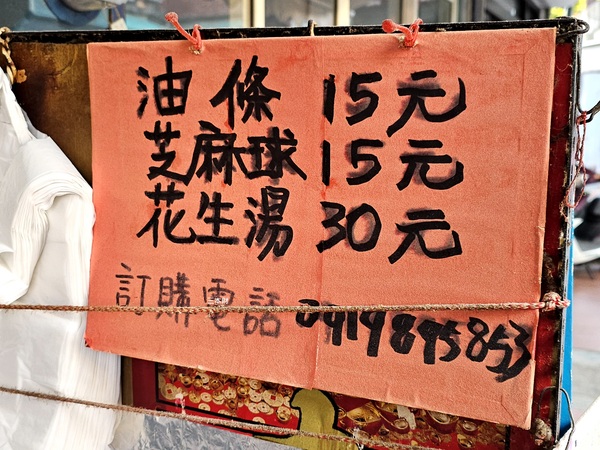 油條 15元
芝麻球 15元
花生湯 30元
訂購電話 0919895853